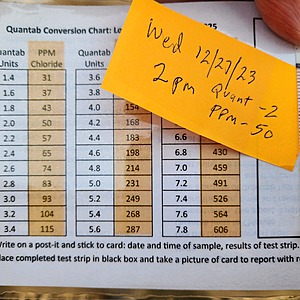 Quantab Conversion Chart: Lo
025
Wed 12/27/23
2pm Quant-2
PPM-50
uantab Units PPM Chloride Quantab Units
1.4 31 3.6
1.6 37 3.8
1.8 43 4.0 154
2.0 50 4.2 168
2.2 57 4.4 183 6.6
2.4 65 4.6 198 6.8 430
2.6 74 4.8 214 7.0 459
2.8 83 5.0 231 7.2 491
3.0 93 5.2 249 7.4 526
3.2 104 5.4 268 7.6 564
3.4 115 5.6 287 7.8 606
Write on a post-it and stick to card: date and time of sample, results of test strip.
lace completed test strip in black box and take a picture of card to report with r